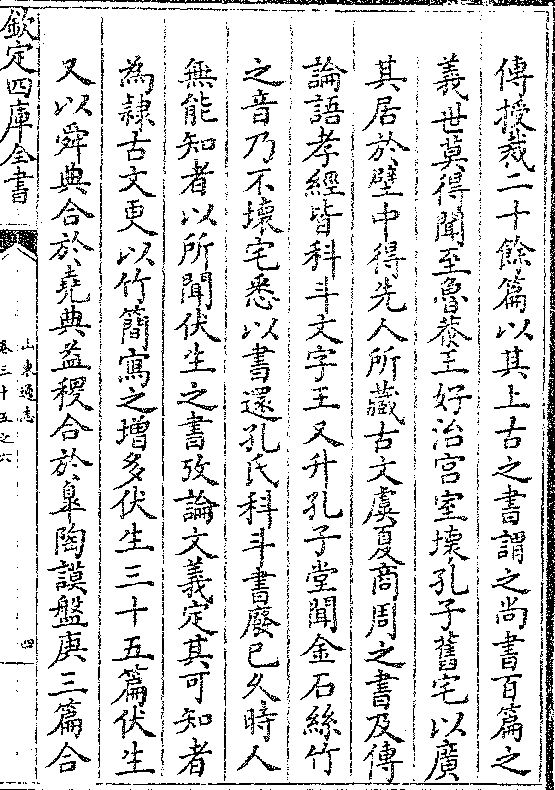 傳授裁二十餘篇以其上古之書謂之尚書百篇之
義世莫得聞至魯㳟王好治宫室壊孔子舊宅以廣
其居於壁中得先人所藏古文虞夏商周之書及傳
論語孝經皆科斗文字王又升孔子堂聞金石絲竹
之音乃不壊宅悉以書還孔氏科斗書廢已久時人
無能知者以所聞伏生之書攷論文義定其可知者
為隸古文更以竹簡寫之增多伏生三十五篇伏生
又以舜典合於堯典益稷合於臯陶謨盤庚三篇合
欽定四庫全書
山東通志
卷三十五之六
四